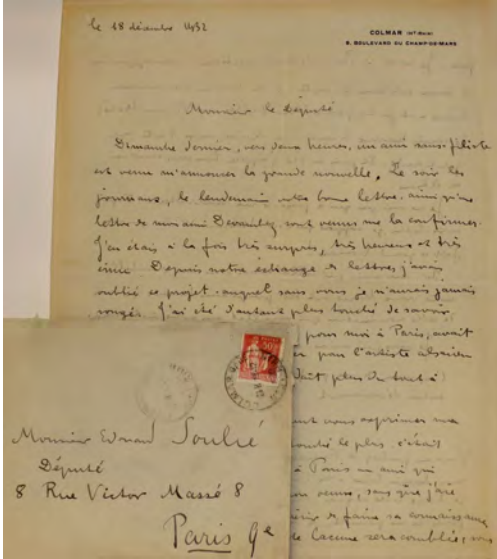 le 18 décembre 1932
COLMAR (HT-RHIN)
8, BOULEVARD DU CHAMP-DE-MARS
Monsieur le Député
Dimanche dernier, vers deux heures, un ami sans-filiste
est venu m'annoncer la grande nouvelle. Le soir les
journaux, le lendemain votre bonne lettre, ainsi qu'une
lettre de mon ami Devambez, sont venus me la confirmer.
J'en étais à la fois très surpris, très heureux et très
ému. Depuis notre échange de lettres j'avais
oublié ce projet auquel sans vous je n'aurais jamais
songé. J'ai été d'autant plus touché de savoir
pour moi à Paris, avait
pour l'artiste alsacien
plus du tout à
vous exprimer ma
touché le plus, c'était
à Paris un ami qui
venu, sans que j'aie
de faire sa connaissance
lacune sera comblée, vous
50
Monsieur Edouard Soulié
Député
8 Rue Victor Massé 8
Paris 9e